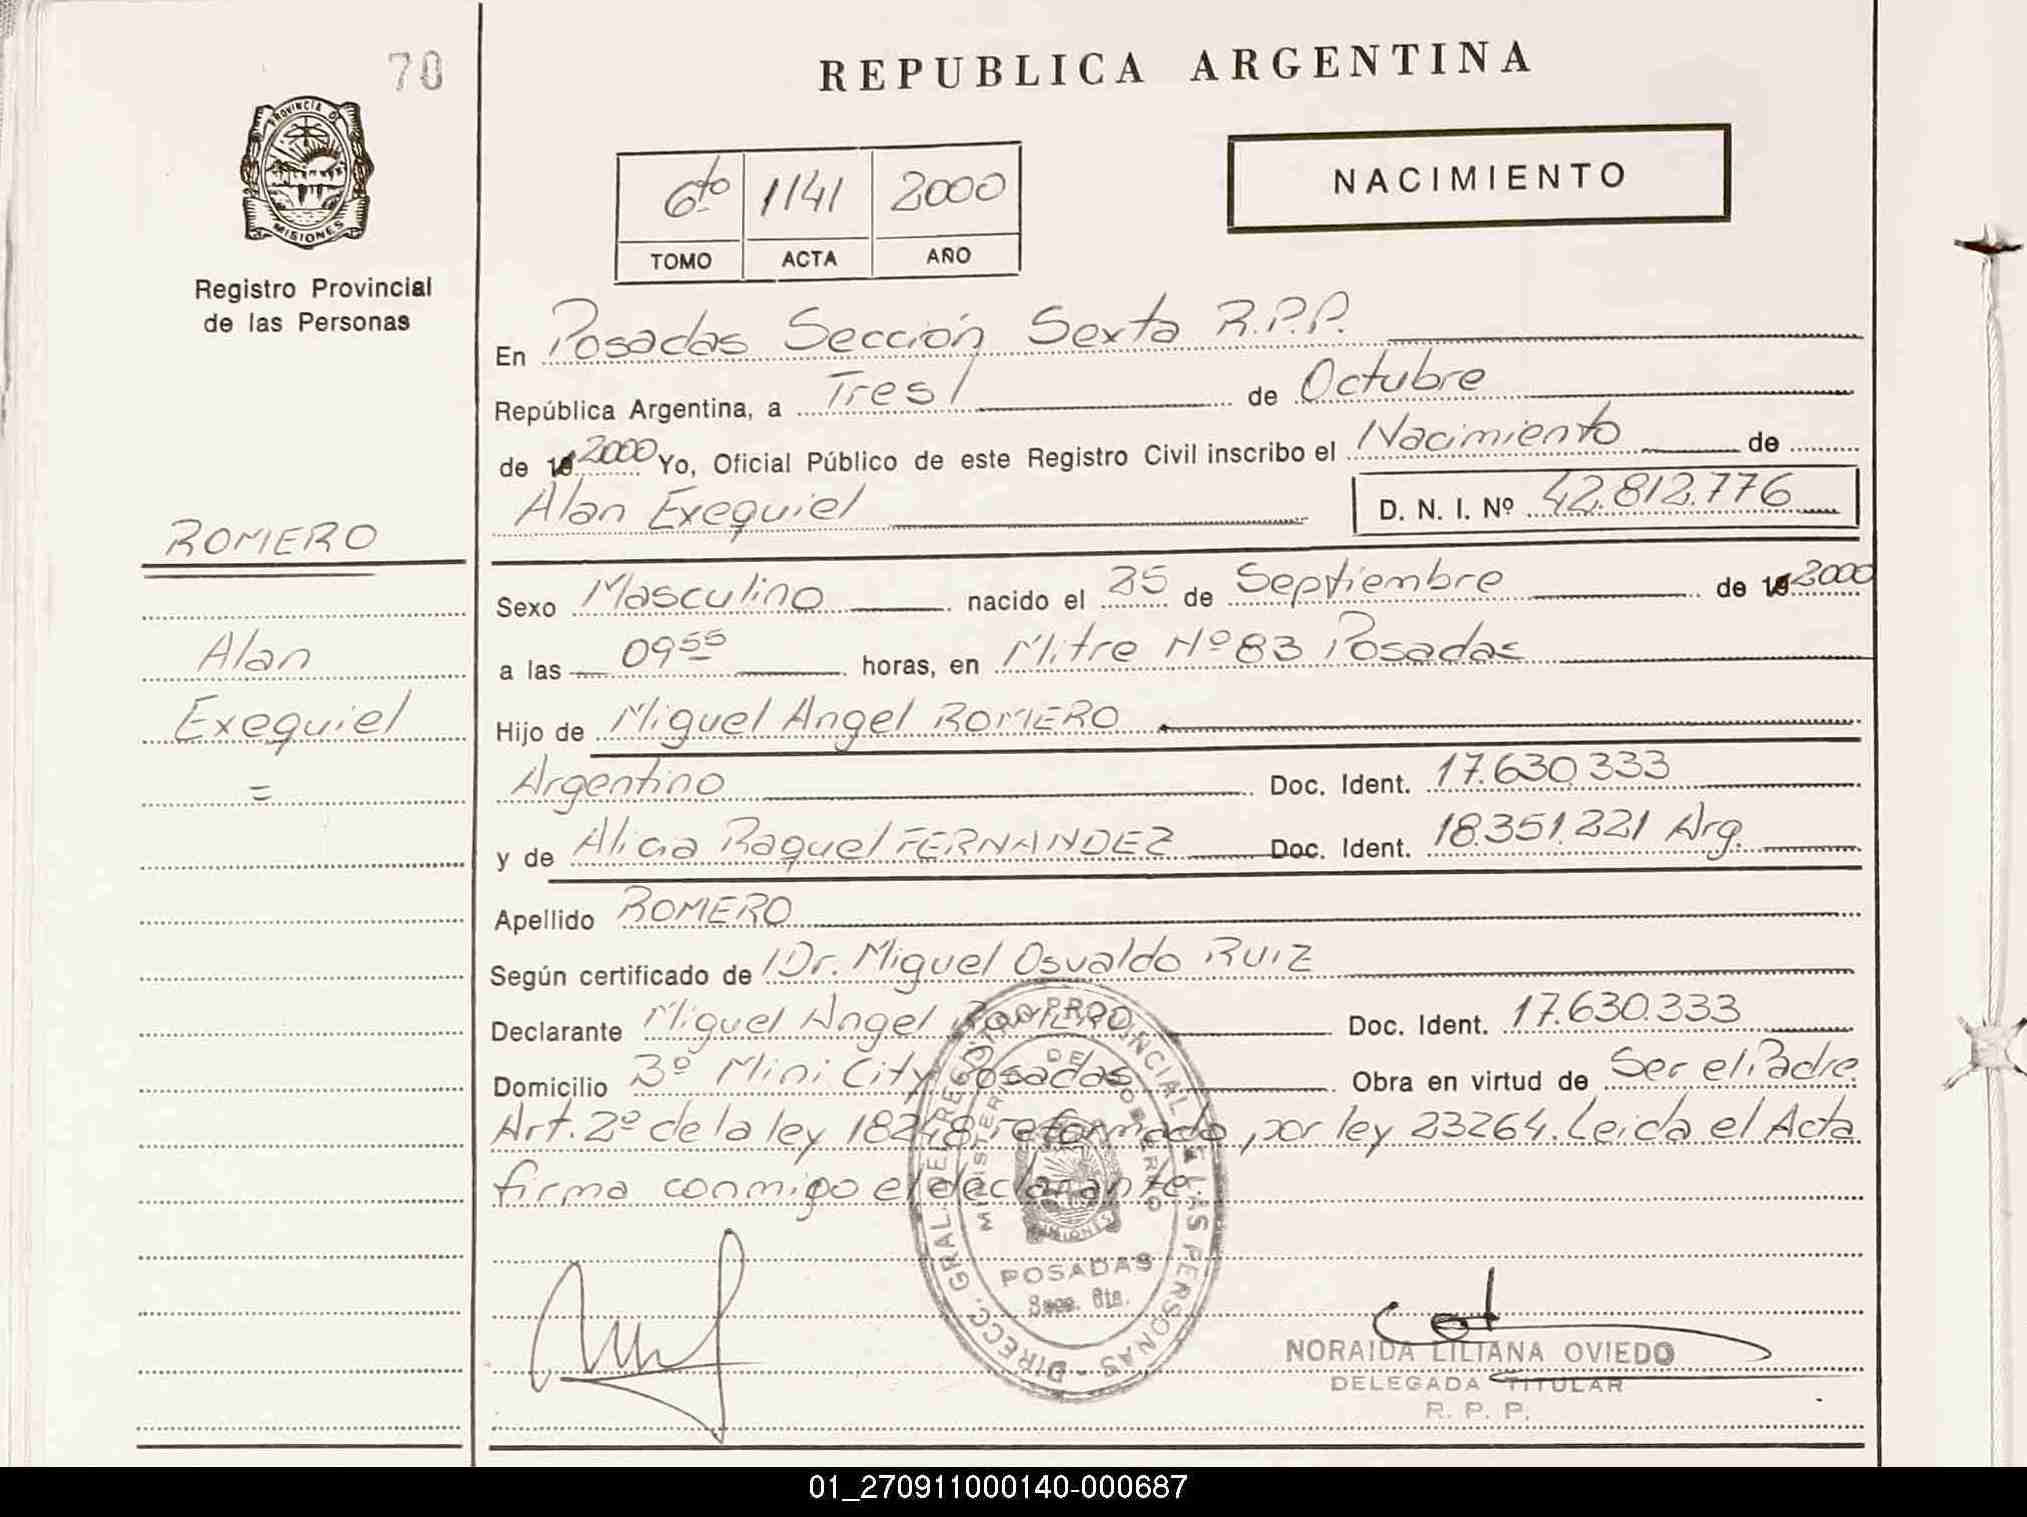 70
REPUBLICA ARGENTINA
PROVINCIA DE
MISIONES
Registro Provincial
de las Personas
6to 1141 2000
TOMO ACTA AÑO
NACIMIENTO
En Posadas Sección Sexta R.P.P.
República Argentina, a Tres de Octubre
de 2000 Yo, Oficial Público de este Registro Civil inscribo el Nacimiento de
Alan Exequiel D. N. I. Nº 42.812.776
ROMERO
Alan
Exequiel
=
Sexo Masculino nacido el 25 de Septiembre de 2000
a las 09 55 horas, en Mitre Nº 83 Posadas
Hijo de Miguel Angel ROMERO
Argentino Doc. Ident. 17.630.333
y de Alicia Raquel FERNANDEZ Doc. Ident. 18.351.221 Arg.
Apellido ROMERO
Según certificado de Dr. Miguel Osvaldo RUIZ
Declarante Miguel Angel ROMERO Doc. Ident. 17.630.333
Domicilio Bº Mini City Posadas Obra en virtud de Ser el Padre
Art. 2º de la ley 18248 reformado por ley 23264. Leida el Acta
firma conmigo el declarante.
DIRECC. GRAL. DE REGISTRO PROVINCIAL DE LAS PERSONAS
MINISTERIO DE GOBIERNO
MISIONES
POSADAS
Secc. 6ta.
NORAIDA LILIANA OVIEDO
DELEGADA TITULAR
R. P. P.
01_270911000140-000687